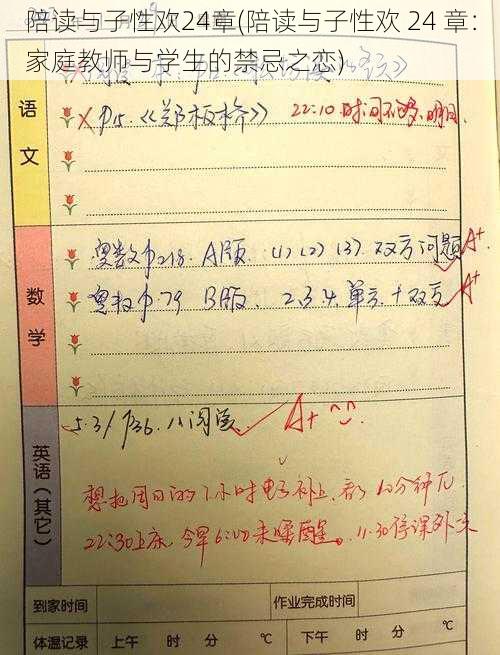 陪读与子性欢24章(陪读与子性欢 24 章：
家庭教师与学生的禁忌之恋)
语文
P15.《郑板桥》 22:10.时间不够,明日.
数学
奥数P218. A版. (1)(2)(3).
A+
奥数P79 B版. 2.3.4.单
A+
英语(其它)
5.3/P36.
A+
想把周日的1小时电子补上,
22:30上床, 今早6:00未醒. 11:30停课外
到家时间 作业完成时间
体温记录 上午 时 分 ℃ 下午 时 分 ℃